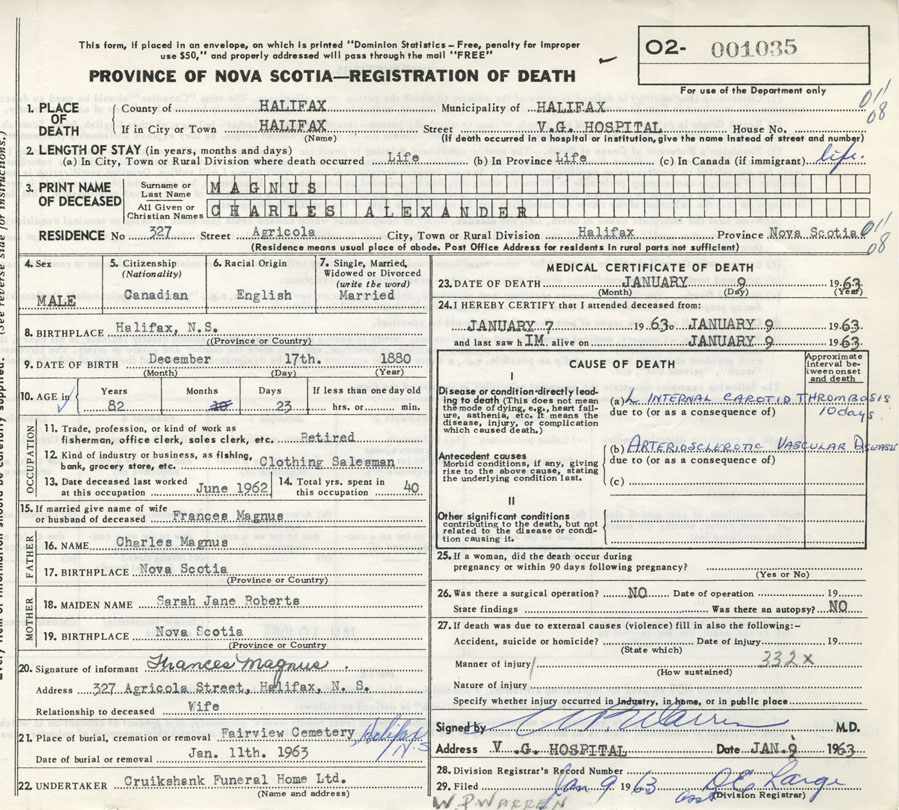 This form, if placed in an envelope, on which is printed "Dominion Statistics – Free, penalty for improper
use $50," and properly addressed will pass through the mail "FREE"
PROVINCE OF NOVA SCOTIA—REGISTRATION OF DEATH
O2- 001035
For use of the Department only
1. PLACE OF DEATH County of HALIFAX Municipality of HALIFAX 01/08
If in City or Town HALIFAX Street V.G. HOSPITAL House No.
(Name) (If death occurred in a hospital or institution, give the name instead of street and number)
2. LENGTH OF STAY (in years, months and days)
(a) In City, Town or Rural Division where death occurred Life (b) In Province Life (c) In Canada (if immigrant) life.
3. PRINT NAME OF DECEASED Surname or Last Name MAGNUS
All Given or Christian Names CHARLES ALEXANDER
RESIDENCE No 327 Street Agricola City, Town or Rural Division Halifax Province Nova Scotia 01/08
(Residence means usual place of abode. Post Office Address for residents in rural parts not sufficient)
4. Sex MALE
5. Citizenship (Nationality) Canadian
6. Racial Origin English
7. Single, Married, Widowed or Divorced (write the word) Married
8. BIRTHPLACE Halifax, N.S.
(Province or Country)
9. DATE OF BIRTH December 17th. 1880
(Month) (Day) (Year)
10. AGE in Years Months Days If less than one day old
82 10 23 hrs. or min.
OCCUPATION
11. Trade, profession, or kind of work as
fisherman, office clerk, sales clerk, etc. Retired
12. Kind of industry or business, as fishing,
bank, grocery store, etc. Clothing Salesman
13. Date deceased last worked at this occupation June 1962
14. Total yrs. spent in this occupation 40
15. If married give name of wife
or husband of deceased Frances Magnus
FATHER
16. NAME Charles Magnus
17. BIRTHPLACE Nova Scotia
(Province or Country)
MOTHER
18. MAIDEN NAME Sarah Jane Roberts
19. BIRTHPLACE Nova Scotia
(Province or Country)
20. Signature of informant Frances Magnus.
Address 327 Agricola Street, Halifax, N. S.
Relationship to deceased Wife
21. Place of burial, cremation or removal Fairview Cemetery, Halifax N.S
Date of burial or removal Jan. 11th. 1963
22. UNDERTAKER Cruikshank Funeral Home Ltd.
(Name and address)
MEDICAL CERTIFICATE OF DEATH
23. DATE OF DEATH JANUARY 9 1963
(Month) (Day) (Year)
24. I HEREBY CERTIFY that I attended deceased from:
JANUARY 7 1963 to JANUARY 9 1963
and last saw h IM alive on JANUARY 9 1963
CAUSE OF DEATH
Approximate interval between onset and death
I
Disease or condition directly leading to death (This does not mean the mode of dying, e.g., heart failure, asthenia, etc. It means the disease, injury, or complication which caused death.)
(a) L INTERNAL CAROTID THROMBOSIS
due to (or as a consequence of) 10 days.
Antecedent causes
Morbid conditions, if any, giving rise to the above cause, stating the underlying condition last.
(b) ARTERIOSCLEROTIC VASCULAR DISEASE
due to (or as a consequence of)
(c)
II
Other significant conditions
contributing to the death, but not related to the disease or condition causing it.
25. If a woman, did the death occur during
pregnancy or within 90 days following pregnancy?
(Yes or No)
26. Was there a surgical operation? NO Date of operation 19
State findings Was there an autopsy? NO
27. If death was due to external causes (violence) fill in also the following:-
Accident, suicide or homicide? Date of injury 19
(State which)
Manner of injury 332X
(How sustained)
Nature of injury
Specify whether injury occurred in industry, in home, or in public place
Signed by W.P. Warren M.D.
Address V.G. HOSPITAL Date JAN. 9 1963
28. Division Registrar's Record Number
29. Filed Jan 9 1963 D.E. Large
(Division Registrar)
W.P WARREN
(See reverse side for instructions.)